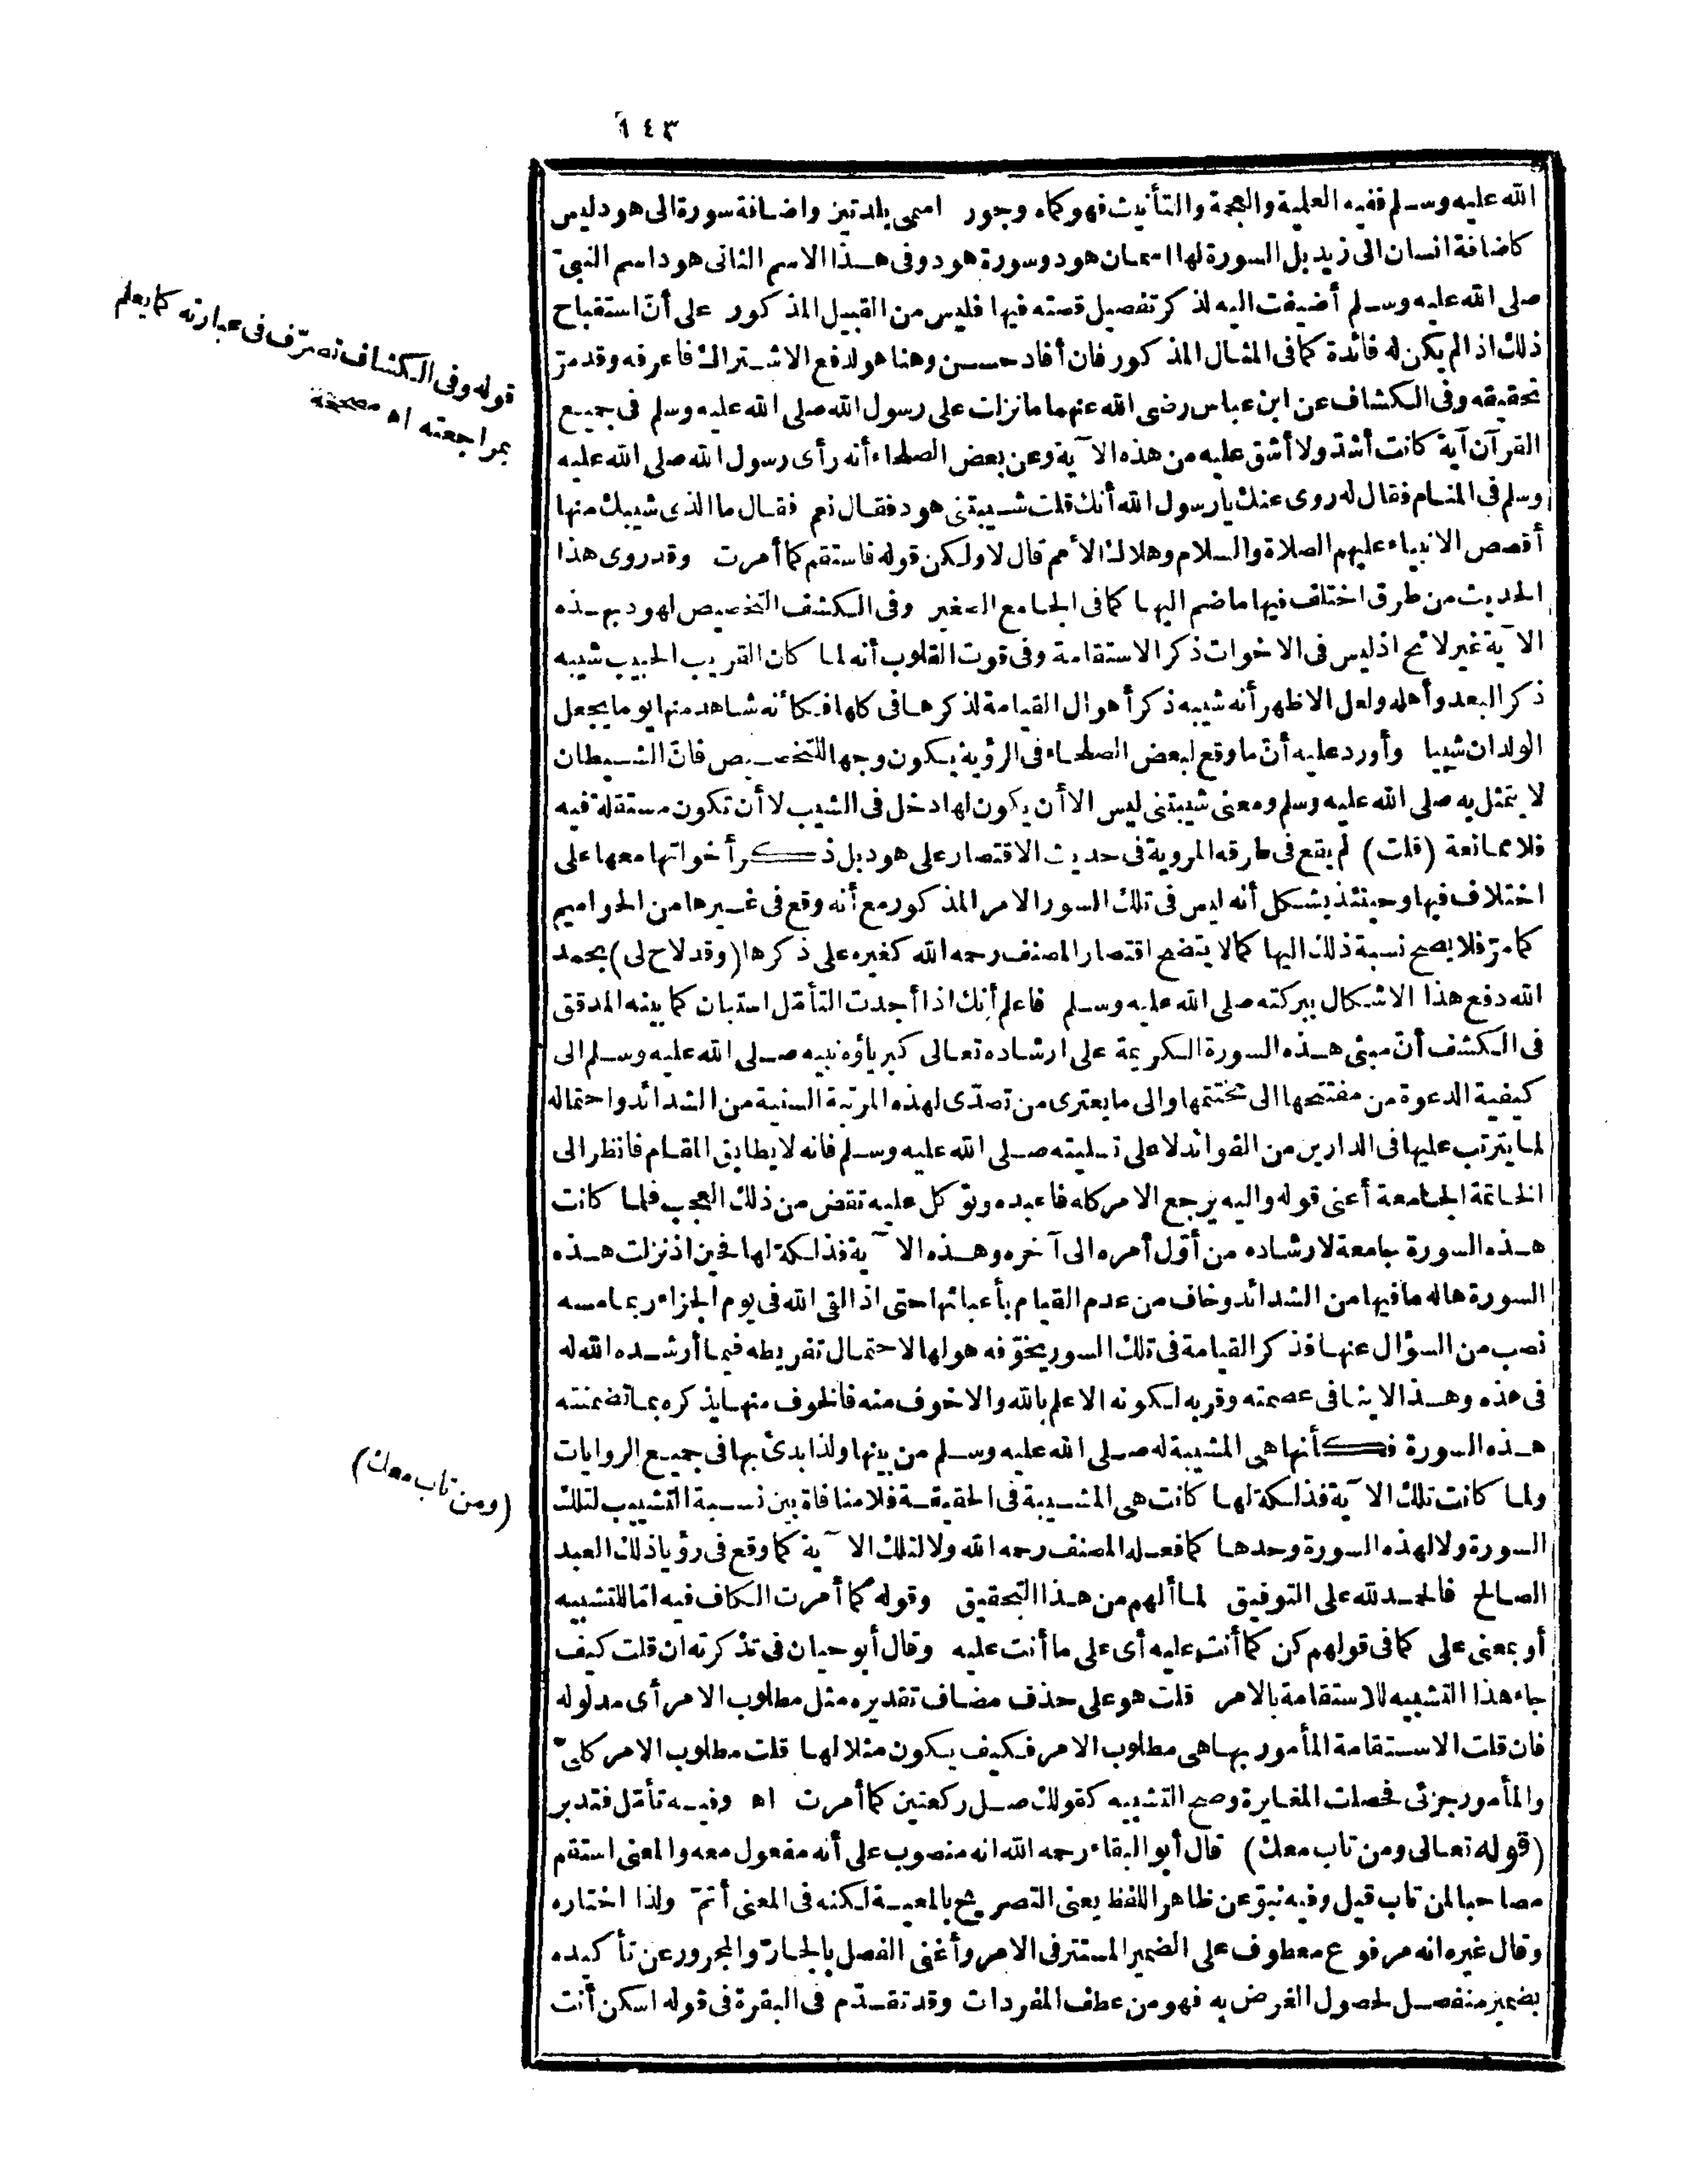 ١٤٣
الله عليه وسلم ففيه العلمية والعجمة والتأنيث فهو كماه وجور اسمى بلدتين واضافة سورة الى هود ليس
كاضافة انسان الى زيد بل السورة لها اسمان هود وسورة هود وفى هذا الاسم الثانى هود اسم النبىّ
صلى الله عليه وسلم أضيفت اليه لذكر تفصيل قصته فيها فليس من القبيل المذكور على أنّ استقباح
ذلك اذا لم يكن له فائدة كما فى المثال المذكور فان أفاد حسن وهنا هو لدفع الاشتراك فاعرفه وقد مرّ
تحقيقه وفى الكشاف عن ابن عباس رضى الله عنهما ما نزلت على رسول الله صلى الله عليه وسلم فى جميع
القرآن آية كانت أشدّ ولا أشق عليه من هذه الآية وعن بعض الصلحاء أنه رأى رسول الله صلى الله عليه
وسلم فى المنام فقال له روى عنك يا رسول الله أنك قلت شيبتنى هود فقال نعم فقال ما الذى شيبك منها
أقصص الانبياء عليهم الصلاة والسلام وهلاك الأمم قال لا ولكن قوله فاستقم كما أمرت وقد روى هذا
الحديث من طرق اختلف فيها ما ضم اليها كما فى الجامع الصغير وفى الكشف التخصيص لهود بهذه
الآية غير لائح اذ ليس فى الاخوات ذكر الاستقامة وفى قوت القلوب أنه لما كان القريب الحبيب شيبه
ذكر البعد وأهله ولعل الاظهر أنه شيبه ذكر أهوال القيامة لذكرها فى كلها فكأنه شاهد منها يوما يجعل
الولدان شيبا وأورد عليه أنّ ما وقع لبعض الصلحاء فى الرؤية يكون وجها للتخصيص فانّ الشيطان
لا يتمثل به صلى الله عليه وسلم ومعنى شيبتنى ليس الا أن يكون لها دخل فى الشيب لا أن تكون مستقلة فيه
فلا ممانعة (قلت) لم يقع فى طرقه المروية فى حديث الاقتصار على هود بل ذكر أخواتها معها على
اختلاف فيها وحينئذ يشكل أنه ليس فى تلك السور الامر المذكور مع أنه وقع فى غيرها من الحواميم
كما مرّ فلا يصح نسبة ذلك اليها كما لا يتضح اقتصار المصنف رحمه الله كغيره على ذكرها (وقد لاح لى) بحمد
الله دفع هذا الاشكال ببركته صلى الله عليه وسلم فاعلم أنك اذا أجدت التأمّل استبان كما بينه المدقق
فى الكشف أنّ مبنى هذه السورة الكريمة على ارشاده تعالى كبرياؤه نبيه صلى الله عليه وسلم الى
كيفية الدعوة من مفتتحها الى مختتمها والى ما يعترى من تصدّى لهذه المرتبة السنية من الشدائد واحتماله
لما يترتب عليها فى الدارين من الفوائد لا على تسليته صلى الله عليه وسلم فانه لا يطابق المقام فانظر الى
الخاتمة الجامعة أعنى قوله واليه يرجع الامر كله فاعبده وتوكل عليه تقض من ذلك العجب فلما كانت
هذه السورة جامعة لارشاده من أوّل أمره الى آخره وهذه الآية فذلكة لها فحين اذ نزلت هذه
السورة هاله ما فيها من الشدائد وخاف من عدم القيام بأعبائها حتى اذا لقى الله فى يوم الجزاء ربما مسه
نصب من السؤال عنها فذكر القيامة فى تلك السور يخوّفه هولها لاحتمال تفريطه فيما أرشده الله له
فى هذه وهذا لا ينافى عصمته وقربه لكونه الاعلم بالله والاخوف منه فالخوف منها يذكره بما تضمنته
هذه السورة فكأنها هى المشيبة له صلى الله عليه وسلم من بينها ولذا بدئ بها فى جميع الروايات
ولما كانت تلك الآية فذلكة لها كانت هى المشيبة فى الحقيقة فلا منافاة بين نسبة التشييب لتلك
السورة ولا لهذه السورة وحدها كما فعله المصنف رحمه الله ولا لتلك الآية كما وقع فى رؤيا ذلك العبد
الصالح فالحمد لله على التوفيق لما ألهم من هذا التحقيق وقوله كما أمرت الكاف فيه امّا للتشبيه
أو بمعنى على كما فى قولهم كن كما أنت عليه أى على ما أنت عليه وقال أبو حيان فى تذكرته ان قلت كيف
جاء هذا التشبيه للاستقامة بالامر قلت هو على حذف مضاف تقديره مثل مطلوب الامر أى مدلوله
فان قلت الاستقامة المأمور بها هى مطلوب الامر فكيف يكون مثلا لها قلت مطلوب الامر كلىّ
والمأمور جزئى فحصلت المغايرة وصح التشبيه كقولك صل ركعتين كما أمرت اه وفيه تأمّل فتدبر
(قوله تعالى ومن تاب معك) قال أبو البقاء رحمه الله انه منصوب على أنه مفعول معه والمعنى استقم
مصاحبا لمن تاب قيل وفيه نبوّ عن ظاهر اللفظ يعنى التصريح بالمعية لكنه فى المعنى أتمّ ولذا اختاره
وقال غيره انه مرفوع معطوف على الضمير المستتر فى الامر وأغنى الفصل بالجارّ والمجرور عن تأكيده
بضمير منفصل لحصول الغرض به فهو من عطف المفردات وقد تقدّم فى البقرة فى قوله اسكن أنت
قوله وفى الكشاف تصرّف فى عبارته كما يعلم
بمراجعته اه مصححه
(ومن تاب معك)